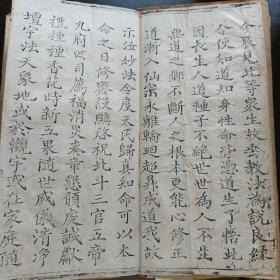 今我見此等眾生故垂教法為說良緣
令使知道知身性命皆憑道生了悟此
因長生人道種子不絕世世為人不生
無道之鄉不斷人之根本更能心修正
道漸入仙宗永離輪迴超昇成道我故
示汝妙法令度天民歸真知命可以本
命之日修齋設醮啓祝北斗三官五帝
九府四司薦福消災奏章懇願虔誠獻
禮種種香花時新五果隨世威儀清淨
壇宇法天象地或於觀宇或在家庭隨